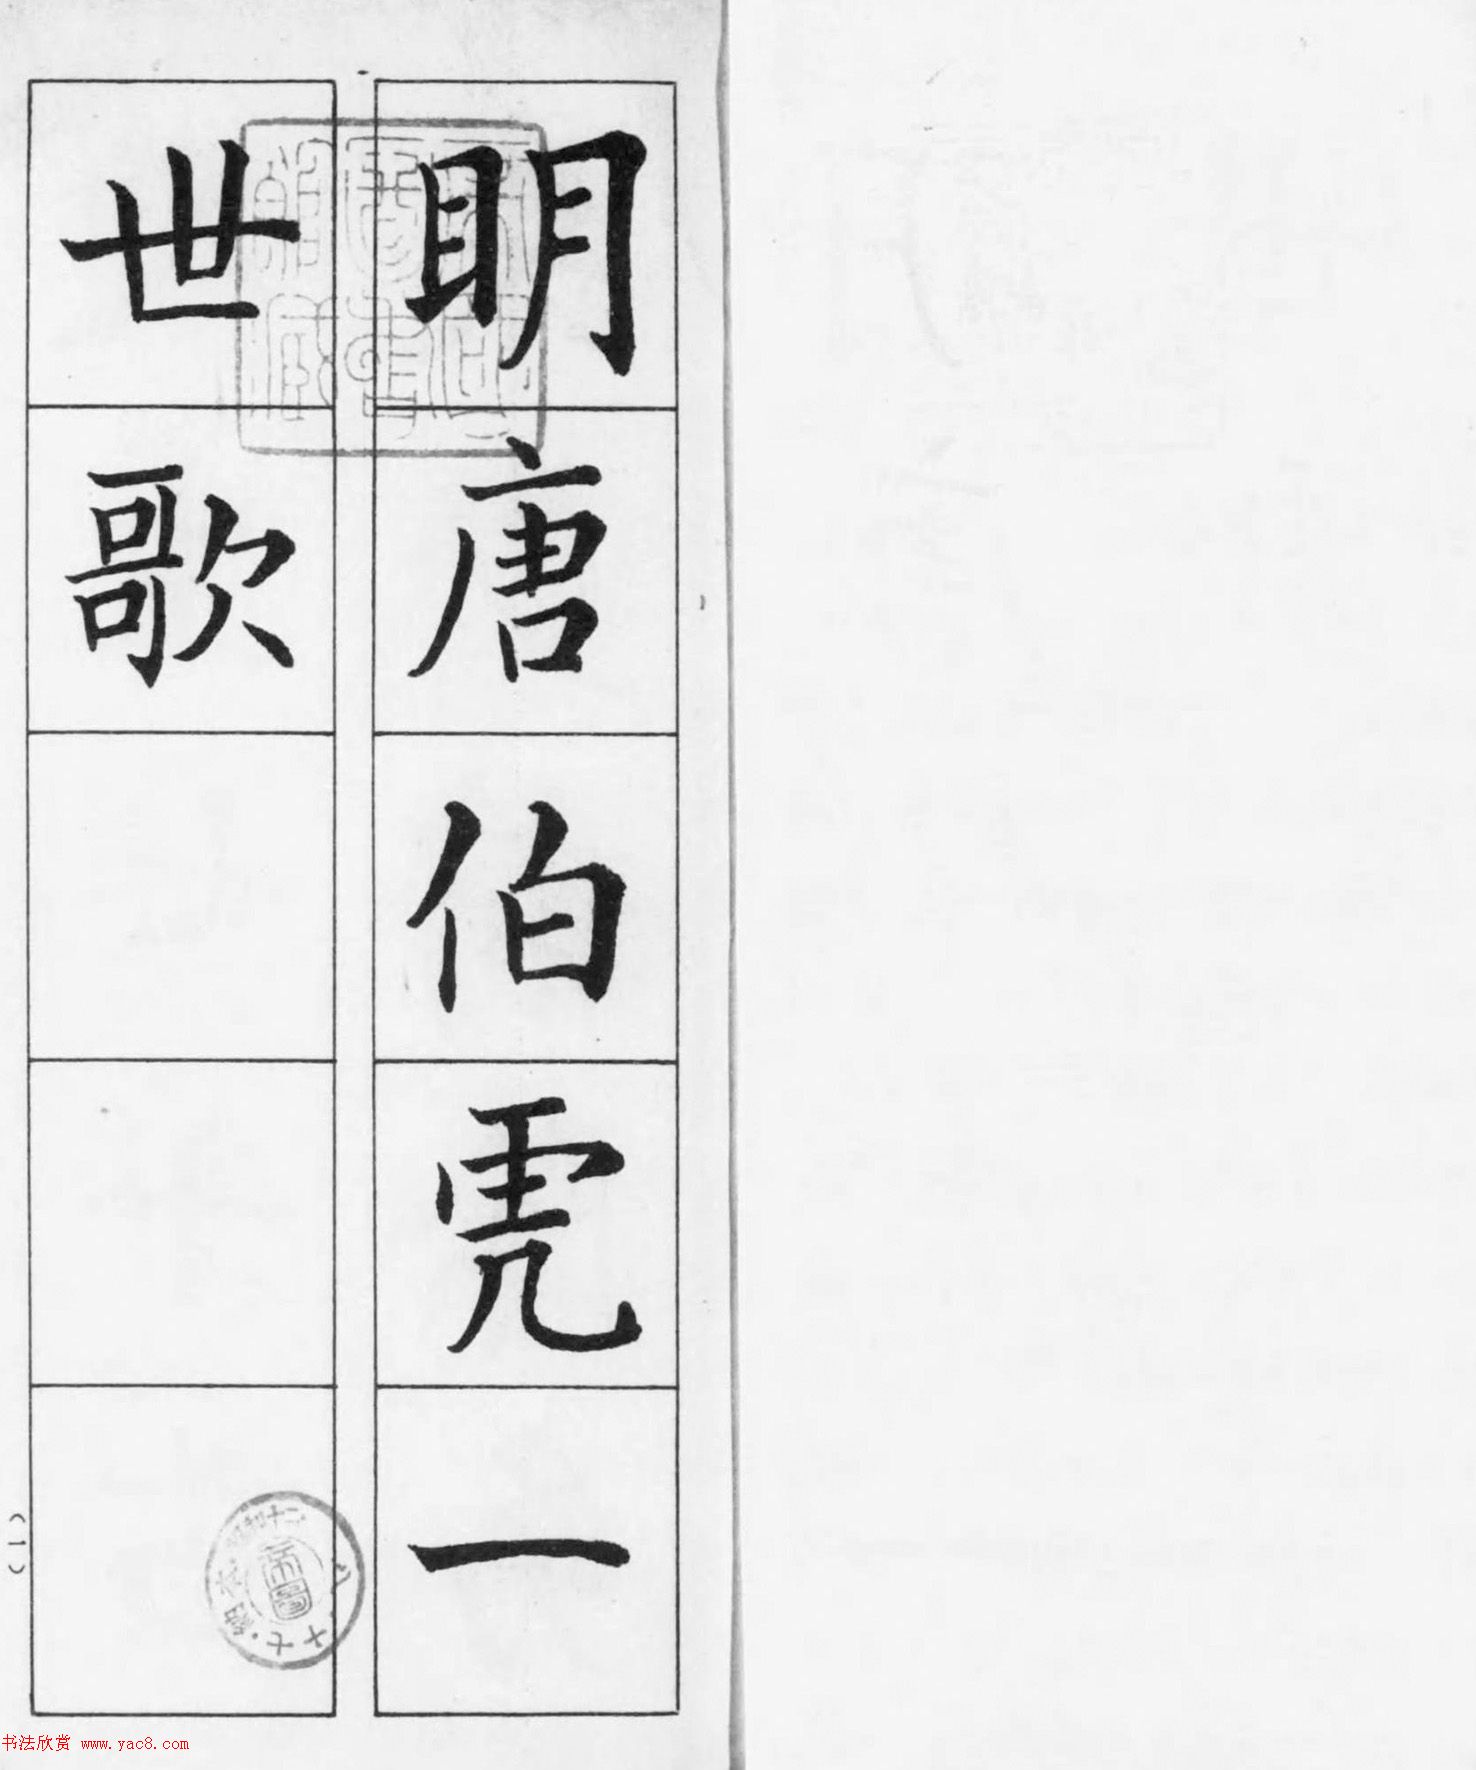 明唐伯虎一
世歌
(1)
书法欣赏 www.yac8.com